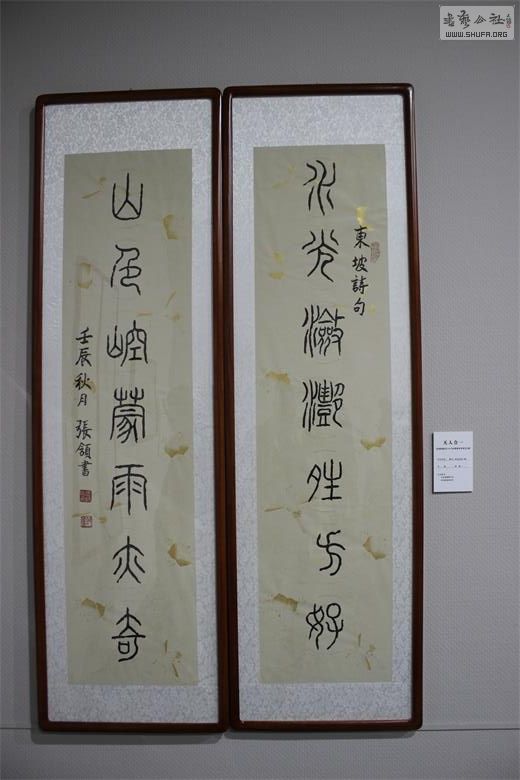 水光瀲灩晴方好
東坡詩句
山色崆蒙雨亦奇
壬辰秋月 張頷書
天人合一
書藝公社
WWW.SHUFA.ORG